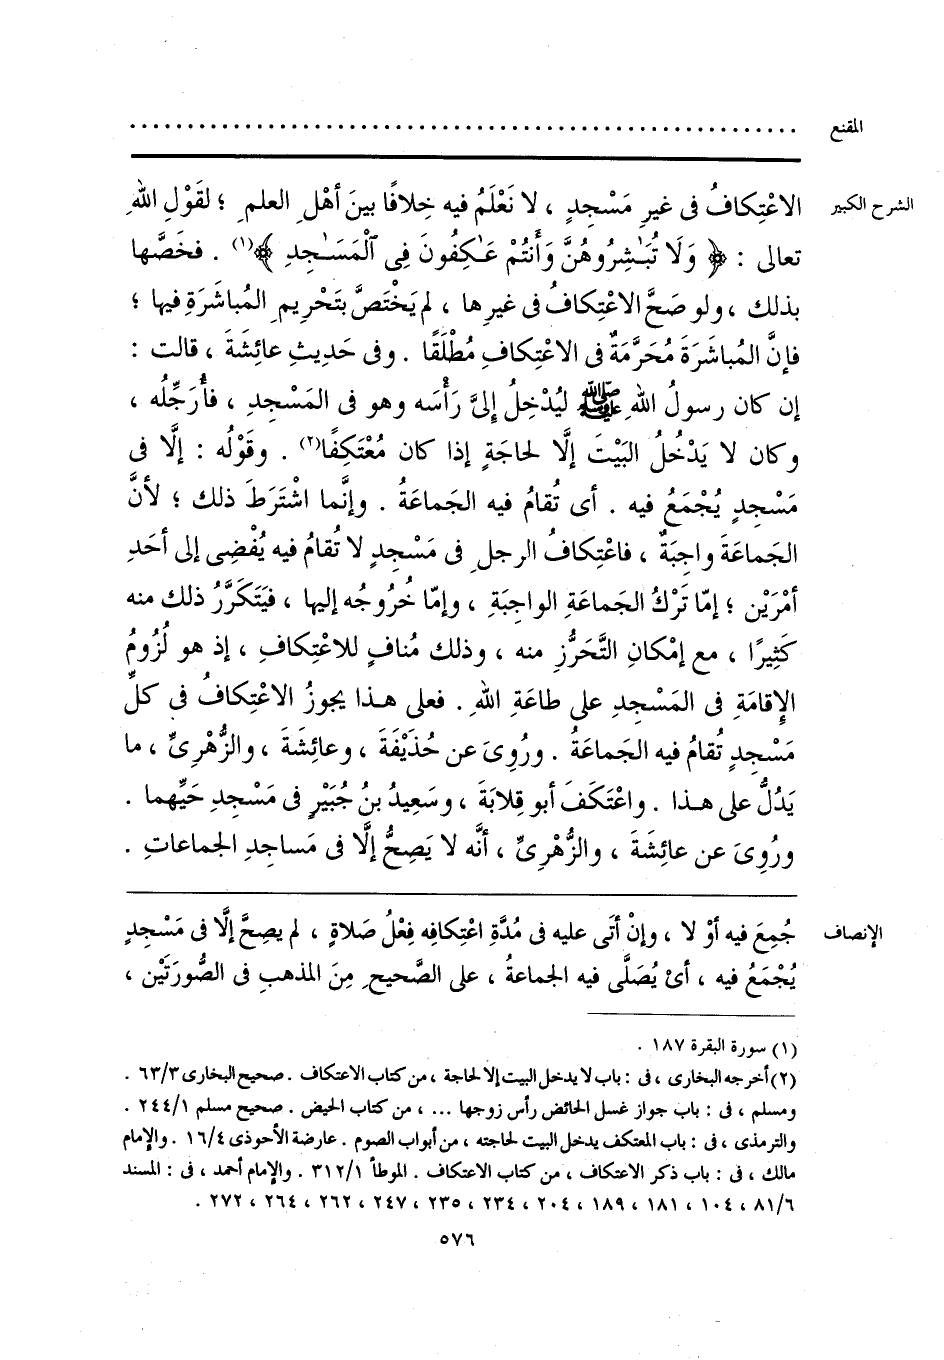 المقنع ............................................................
الشرح الكبير الاعْتِكافُ فى غيرِ مَسْجِدٍ ، لا نَعْلَمُ فيه خِلافًا بينَ أهْلِ العلمِ ؛ لقَوْلِ اللهِ
تعالى : ﴿ وَلَا تُبَٰشِرُوهُنَّ وَأَنتُمْ عَٰكِفُونَ فِى ٱلْمَسَٰجِدِ ﴾(١) . فخَصَّها
بذلك ، ولو صَحَّ الاعْتِكافُ فى غيرِها ، لم يَخْتَصَّ بتَحْرِيمِ المُباشَرَةِ فيها ؛
فإنَّ المُباشَرَةَ مُحَرَّمَةٌ فى الاعْتِكافِ مُطْلَقًا . وفى حَدِيثِ عائِشَةَ ، قالت :
إن كان رسولُ اللهِ ﷺ ليُدْخِلُ إلىَّ رَأْسَه وهو فى المَسْجِدِ ، فأُرَجِّلُه ،
وكان لا يَدْخُلُ البَيْتَ إلَّا لحاجَةٍ إذا كان مُعْتَكِفًا(٢) . وقَوْلُه : إلَّا فى
مَسْجِدٍ يُجْمَعُ فيه . أى تُقامُ فيه الجَماعَةُ . وإنَّما اشْتَرَطَ ذلك ؛ لأنَّ
الجَماعَةَ واجِبَةٌ ، فاعْتِكافُ الرجلِ فى مَسْجِدٍ لا تُقامُ فيه يُفْضِى إلى أحَدِ
أمْرَيْن ؛ إمّا تَرْكُ الجَماعَةِ الواجِبَةِ ، وإمّا خُرُوجُه إليها ، فيَتَكَرَّرُ ذلك منه
كَثِيرًا ، مع إمْكانِ التَّحَرُّزِ منه ، وذلك مُنافٍ للاعْتِكافِ ، إذ هو لُزُومُ
الإِقامَةِ فى المَسْجِدِ على طاعَةِ اللهِ . فعلى هذا يجوزُ الاعْتِكافُ فى كلِّ
مَسْجِدٍ تُقامُ فيه الجَماعَةُ . ورُوِىَ عن حُذَيْفَةَ ، وعائِشَةَ ، والزُّهْرِىِّ ، ما
يَدُلُّ على هذا . واعْتَكَفَ أبو قِلابَةَ ، وسَعِيدُ بنُ جُبَيْرٍ فى مَسْجِدِ حَيِّهما .
ورُوِىَ عن عائِشَةَ ، والزُّهْرِىِّ ، أنَّه لا يَصِحُّ إلَّا فى مَساجِدِ الجماعاتِ .
الإنصاف جُمِعَ فيه أوْ لا ، وإنْ أتَى عليه فى مُدَّةِ اعْتِكافِه فِعْلُ صَلاةٍ ، لم يصِحَّ إلَّا فى مَسْجِدٍ
يُجْمَعُ فيه ، أىْ يُصَلَّى فيه الجماعةُ ، على الصَّحيحِ مِنَ المذهبِ فى الصُّورَتَيْن ،
(١) سورة البقرة ١٨٧ .
(٢) أخرجه البخارى ، فى : باب لا يدخل البيت إلا لحاجة ، من كتاب الاعتكاف . صحيح البخارى ٦٣/٣ .
ومسلم ، فى : باب جواز غسل الحائض رأس زوجها ... ، من كتاب الحيض . صحيح مسلم ٢٤٤/١ .
والترمذى ، فى : باب المعتكف يدخل البيت لحاجته ، من أبواب الصوم . عارضة الأحوذى ١٦/٤ . والإمام
مالك ، فى : باب ذكر الاعتكاف ، من كتاب الاعتكاف . الموطأ ٣١٢/١ . والإمام أحمد ، فى : المسند
٨١/٦ ، ١٠٤ ، ١٨١ ، ١٨٩ ، ٢٠٤ ، ٢٣٤ ، ٢٣٥ ، ٢٤٧ ، ٢٦٢ ، ٢٦٤ ، ٢٧٢ .
٥٧٦